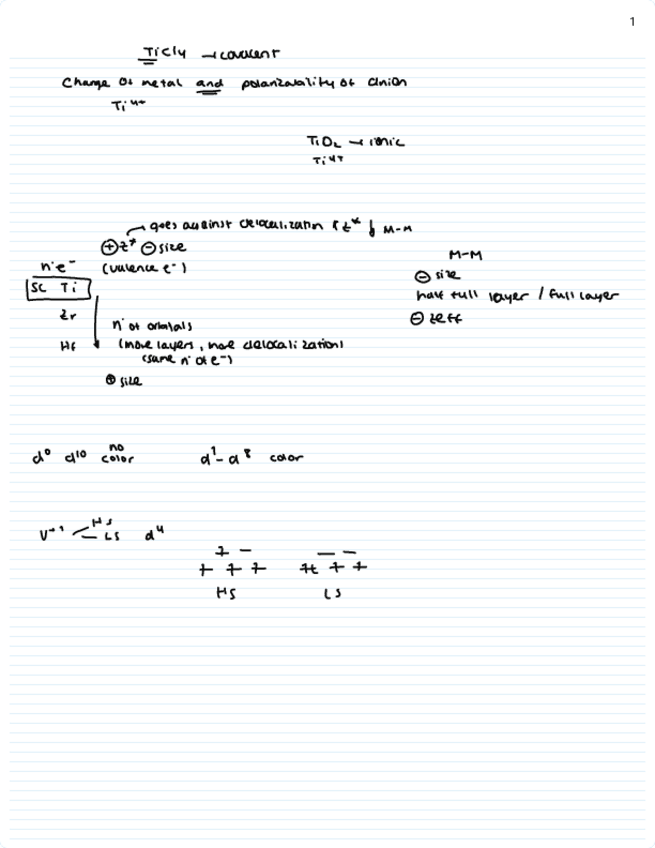 1
TiCl4 → covalent
Charge of metal and polarizability of anion
Ti4+
TiO2 → ionic
Ti4+
goes against delocalization ↑ Z* ↓ M-M
⊕ Z* ⊖ size
nºe- (valence e-)
Sc Ti
Zr
Hf
nº of orbitals
(more layers, more delocalization)
(same nº of e-)
⊕ size
M-M
⊖ size
half full layer / full layer
⊖ zeff
d0 d10 no color
d1-d8 color
HS
LS d4
HS LS